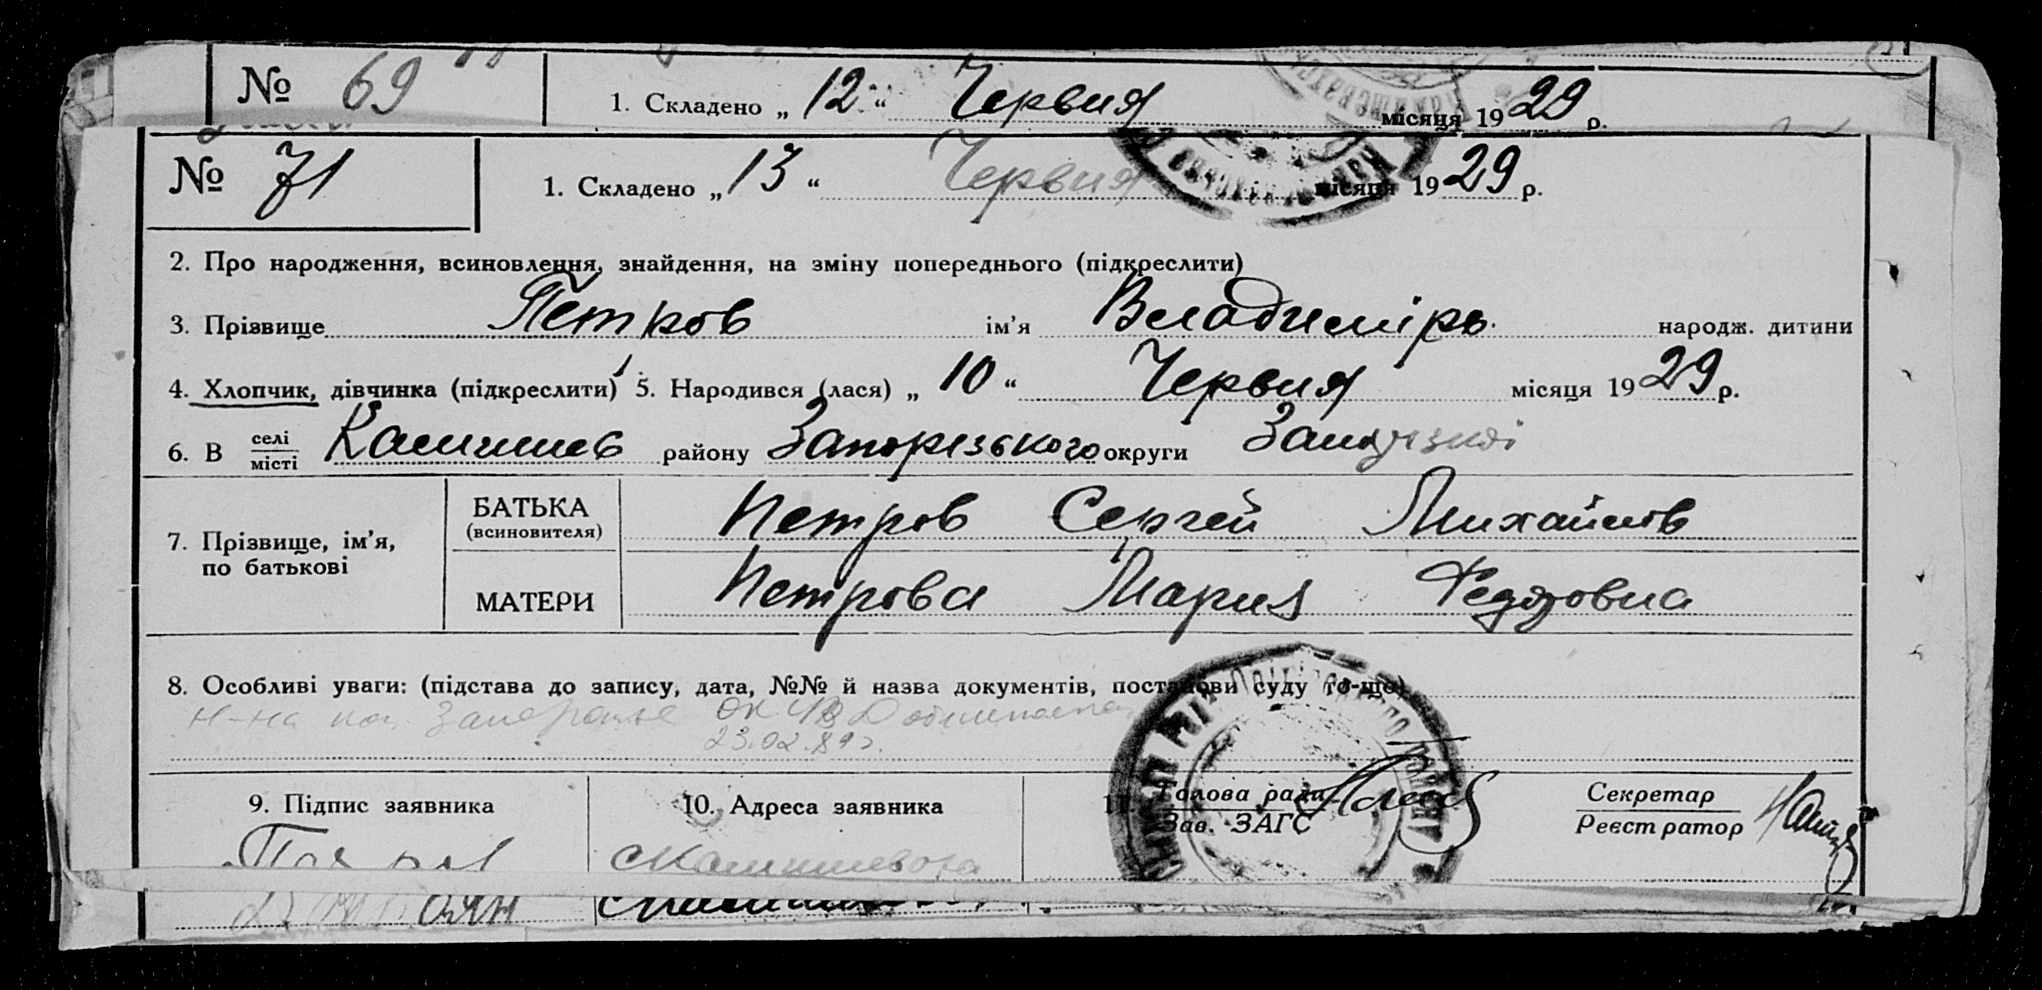 № 69 1. Складено „ 12 “ Червня місяця 1929 р.
№ 71 1. Складено „ 13 “ Червня місяця 1929 р.
2. Про народження, всиновлення, знайдення, на зміну попереднього (підкреслити)
3. Прізвище Петров ім’я Владимірь народж. дитини
4. Хлопчик, дівчинка (підкреслити) 5. Народився (лася) „ 10 “ Червня місяця 1929 р.
6. В селі Камишев району Запорізького округи
місті
7. Прізвище, ім’я, по батькові
БАТЬКА (всиновителя) Петров Сергей Михайлов
МАТЕРИ Петрова Мария Федоровна
8. Особливі уваги: (підстава до запису, дата, №№ й назва документів, постанови суду то-що)
23.02.89 г.
9. Підпис заявника 10. Адреса заявника 11. Голова ради Секретар
Зав. ЗАГС Реєстратор